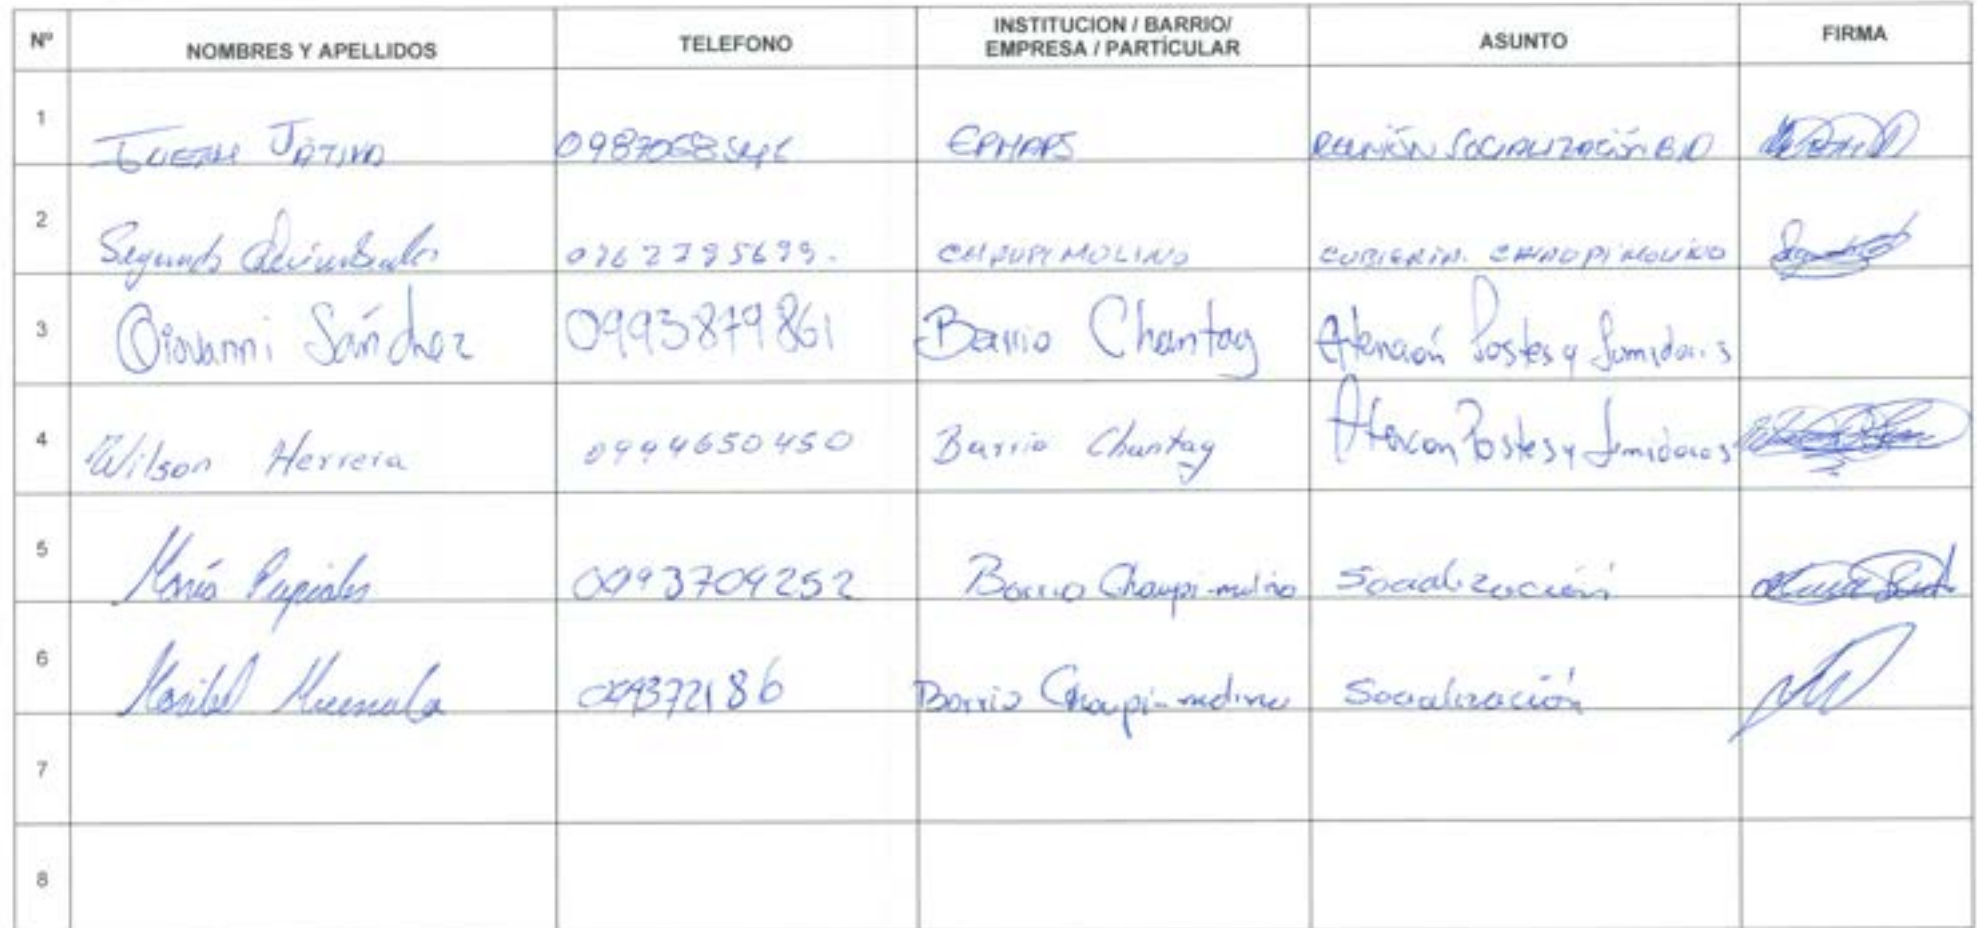 Nº NOMBRES Y APELLIDOS TELEFONO INSTITUCION / BARRIO/ EMPRESA / PARTÍCULAR ASUNTO FIRMA
1 Játiva EPMAPS REUNIÓN SOCIALIZACIÓN
2 Segundo CHAUPIMOLINO CHAUPIMOLINO
3 Giovanni Sánchez 0993879861 Barrio Chantag Atención Postes y Sumideros
4 Wilson Herrera 0994650450 Barrio Chantag Postes y Sumideros
5 María Pupiales 0093704252 Barrio Chaupi-molino Socialización
6 Maribel Barrio Socialización
7
8